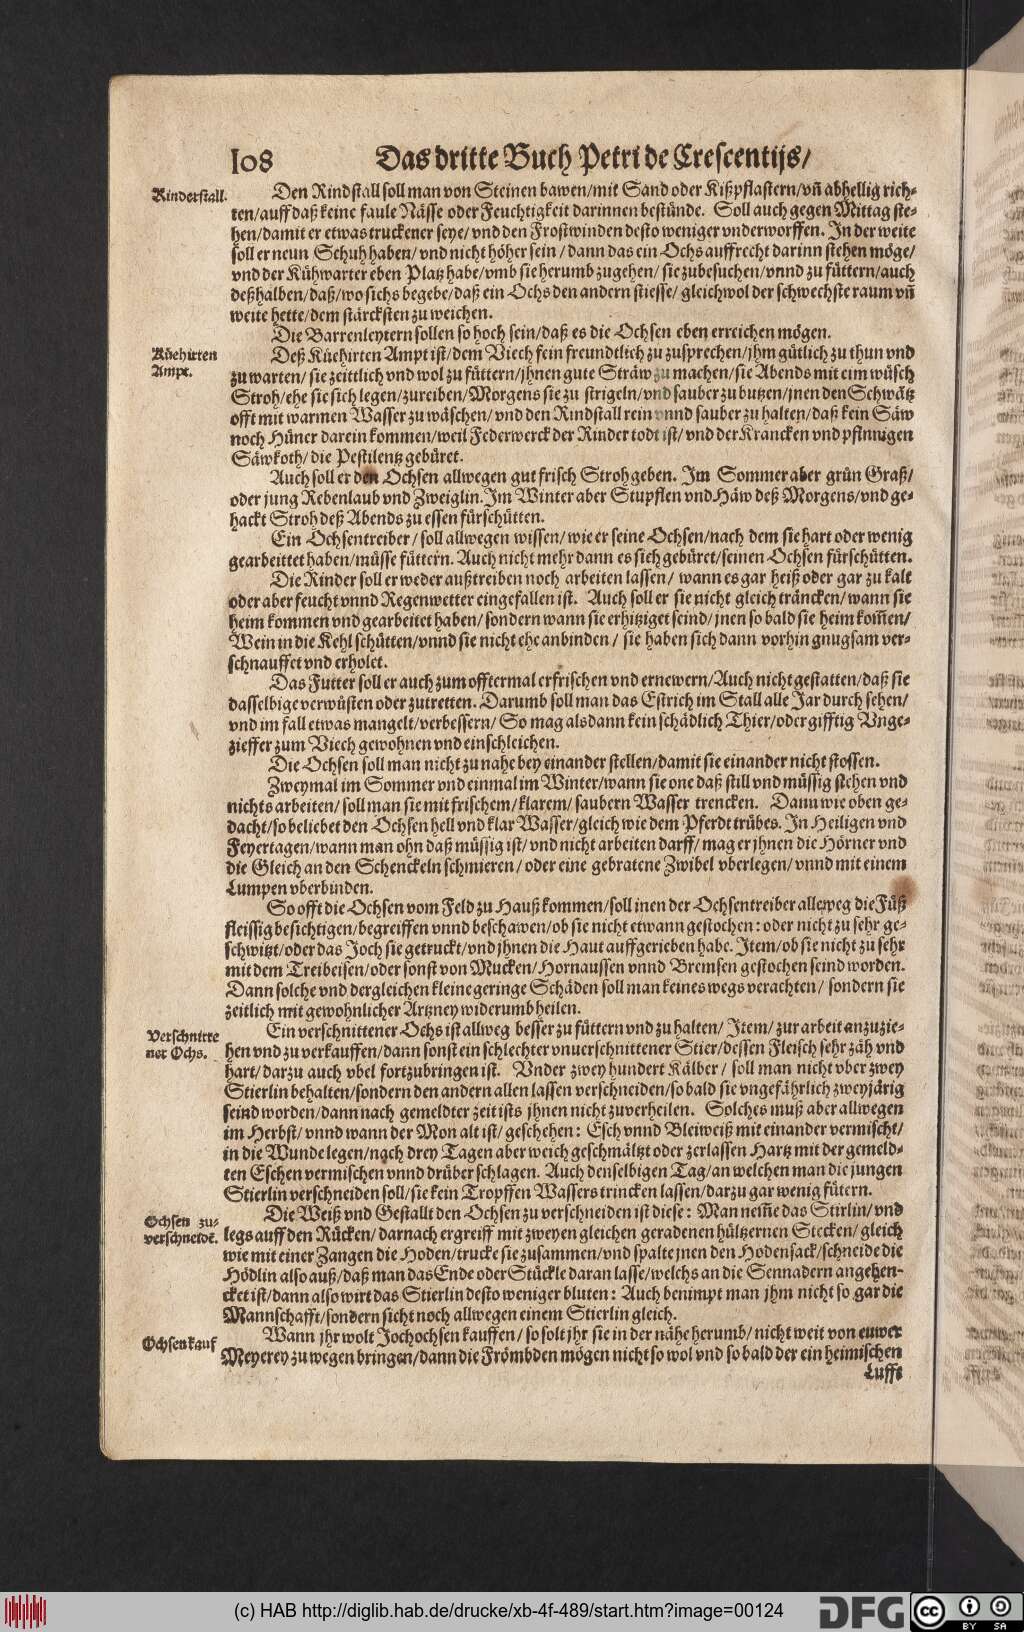 108 Das dritte Buch Petri de Crescentijs/
Rinderstall.
Den Rindstall soll man von Steinen bawen/mit Sand oder Kißpflastern/vn̄ abhellig rich-
ten/auff daß keine faule Nässe oder Feuchtigkeit darinnen bestünde. Soll auch gegen Mittag ste-
hen/damit er etwas truckener seye/vnd den Frostwinden desto weniger vnderworffen. In der weite
soll er neun Schuh haben/vnd nicht höher sein/dann das ein Ochs auffrecht darinn stehen möge/
vnd der Kühwarter eben Platz habe/vmb sie herumb zugehen/sie zubesuchen/vnnd zu füttern/auch
deßhalben/daß/wo sichs begebe/daß ein Ochs den andern stiesse/gleichwol der schwechste raum vn̄
weite hette/dem stärcksten zu weichen.
Die Barrenleytern sollen so hoch sein/daß es die Ochsen eben erreichen mögen.
Küehirten
Ampt.
Deß Küehirten Ampt ist/dem Viech fein freundtlich zu zusprechen/jhm gütlich zu thun vnd
zu warten/sie zeittlich vnd wol zu füttern/jhnen gute Sträw zu machen/sie Abends mit eim wüsch
Stroh/ehe sie sich legen/zureiben/Morgens sie zu strigeln/vnd sauber zu butzen/jnen den Schwätz
offt mit warmen Wasser zu wäschen/vnd den Rindstall rein vnnd sauber zu halten/daß kein Säw
noch Hüner darein kommen/weil Federwerck der Rinder todt ist/vnd der Krancken vnd pfinnigen
Säwkoth/die Pestilentz gebüret.
Auch soll er den Ochsen allwegen gut frisch Stroh geben. Im Sommer aber grün Graß/
oder jung Rebenlaub vnd Zweiglin. Im Winter aber Stupflen vnd Häw deß Morgens/vnd ge-
hackt Stroh deß Abends zu essen fürschütten.
Ein Ochsentreiber/soll allwegen wissen/wie er seine Ochsen/nach dem sie hart oder wenig
gearbeittet haben/müsse füttern. Auch nicht mehr dann es sich gebüret/seinen Ochsen fürschütten.
Die Rinder soll er weder außtreiben noch arbeiten lassen/wann es gar heiß oder gar zu kalt
oder aber feucht vnnd Regenwetter eingefallen ist. Auch soll er sie nicht gleich träncken/wann sie
heim kommen vnd gearbeitet haben/sondern wann sie erhitziget seind/jnen so bald sie heim kom̄en/
Wein in die Kehl schütten/vnnd sie nicht ehe anbinden/sie haben sich dann vorhin gnugsam ver-
schnauffet vnd erholet.
Das Futter soll er auch zum offtermal erfrischen vnd ernewern/Auch nicht gestatten/daß sie
dasselbige verwüsten oder zutretten. Darumb soll man das Estrich im Stall alle Jar durch sehen/
vnd im fall etwas mangelt/verbessern/So mag alsdann kein schädlich Thier/oder gifftig Vnge-
zieffer zum Viech gewohnen vnd einschleichen.
Die Ochsen soll man nicht zu nahe bey einander stellen/damit sie einander nicht stossen.
Zweymal im Sommer vnd einmal im Winter/wann sie one daß still vnd müssig stehen vnd
nichts arbeiten/soll man sie mit frischem/klarem/saubern Wasser trencken. Dann wie oben ge-
dacht/so beliebet den Ochsen hell vnd klar Wasser/gleich wie dem Pferdt trübes. In Heiligen vnd
Feyertagen/wann man ohn daß müssig ist/vnd nicht arbeiten darff/mag er jhnen die Hörner vnd
die Gleich an den Schenckeln schmieren/oder eine gebratene Zwibel vberlegen/vnnd mit einem
Lumpen vberbinden.
So offt die Ochsen vom Feld zu Hauß kommen/soll inen der Ochsentreiber alleweg die Füß
fleissig besichtigen/begreiffen vnnd beschawen/ob sie nicht etwann gestochen: oder nicht zu sehr ge-
schwitzt/oder das Joch sie getruckt/vnd jhnen die Haut auffgerieben habe. Item/ob sie nicht zu sehr
mit dem Treibeisen/oder sonst von Mucken/Hornaussen vnnd Bremsen gestochen seind worden.
Dann solche vnd dergleichen kleine geringe Schäden soll man keines wegs verachten/sondern sie
zeitlich mit gewohnlicher Artzney widerumb heilen.
Verschnitte
ner Ochs.
Ein verschnittener Ochs ist allweg besser zu füttern vnd zu halten/Item/zur arbeit anzuzie-
hen vnd zu verkauffen/dann sonst ein schlechter vnuerschnittener Stier/dessen Fleisch sehr zäh vnd
hart/darzu auch vbel fortzubringen ist. Vnder zwey hundert Kälber/soll man nicht vber zwey
Stierlin behalten/sondern den andern allen lassen verschneiden/so bald sie vngefährlich zweyjärig
seind worden/dann nach gemeldter zeit ists jhnen nicht zuverheilen. Solches muß aber allwegen
im Herbst/vnnd wann der Mon alt ist/geschehen: Esch vnnd Bleiweiß mit einander vermischt/
in die Wunde legen/nach drey Tagen aber weich geschmältzt oder zerlassen Hartz mit der gemeld-
ten Eschen vermischen vnnd drüber schlagen. Auch denselbigen Tag/an welchen man die jungen
Stierlin verschneiden soll/sie kein Tropffen Wassers trincken lassen/darzu gar wenig fütern.
Ochsen zu-
verschneidē.
Die Weiß vnd Gestallt den Ochsen zu verschneiden ist diese: Man nem̄e das Stirlin/vnd
legs auff den Rücken/darnach ergreiff mit zweyen gleichen geradenen hültzernen Stecken/gleich
wie mit einer Zangen die Hoden/trucke sie zusammen/vnd spalte jnen den Hodensack/schneide die
Hödlin also auß/daß man das Ende oder Stückle daran lasse/welchs an die Sennadern angehen-
cket ist/dann also wirt das Stierlin desto weniger bluten: Auch benimpt man jhm nicht so gar die
Mannschafft/sondern sicht noch allwegen einem Stierlin gleich.
Ochsenkauf
Wann jhr wolt Jochochsen kauffen/so solt jhr sie in der nähe herumb/nicht weit von euwer
Meyerey zu wegen bringen/dann die Frömbden mögen nicht so wol vnd so bald der ein heimischen
Lufft
(c) HAB http://diglib.hab.de/drucke/xb-4f-489/start.htm?image=00124
DFG
cc
BY SA